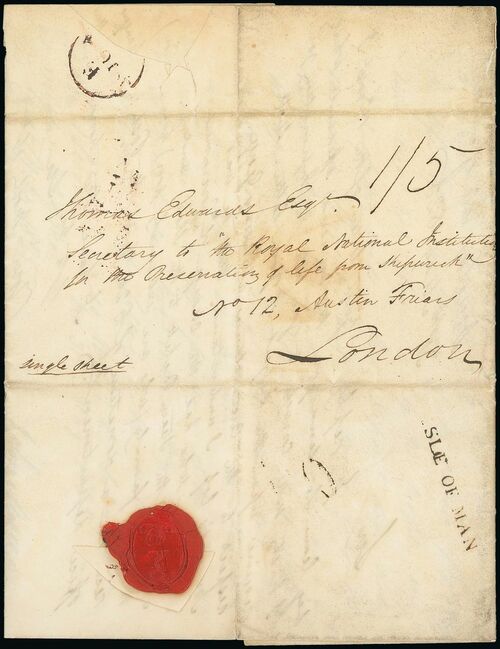 1/5
Thomas Edwards Esqr.
Secretary to "the Royal National Institution
for the Preservation of life from Shipwreck"
No 12, Austin Friars
London
single sheet
ISLE OF MAN